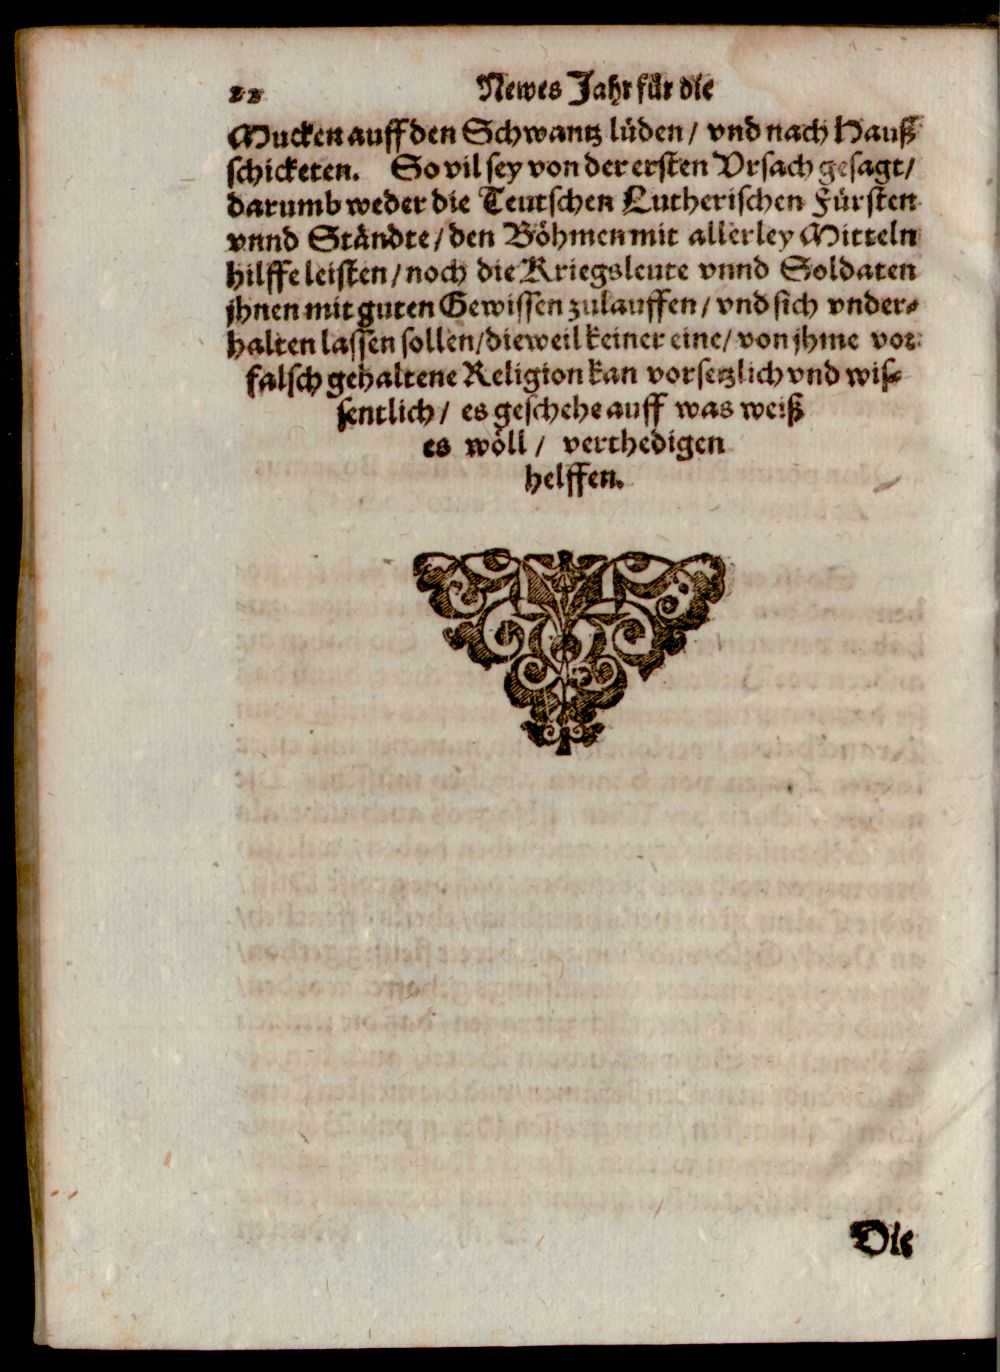 22 Newes Jahr für die
Mucken auff den Schwantz lüden / vnd nach Hauß
schicketen. So vil sey von der ersten Vrsach gesagt /
darumb weder die Teutschen Lutherischen Fürsten
vnnd Ständte / den Böhmen mit allerley Mitteln
hilffe leisten / noch die Kriegsleute vnnd Soldaten
jhnen mit guten Gewissen zulauffen / vnd sich vnder-
halten lassen sollen / dieweil keiner eine / von jhme vor
falsch gehaltene Religion kan vorsetzlich vnd wis-
sentlich / es geschehe auff was weiß
es wöll / verthedigen
helffen.
Die